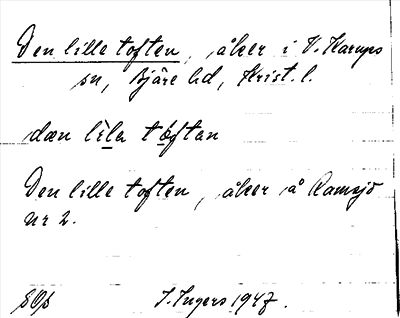 Den lille toften, åker i V. Karups
sn, Bjäre hd, Krist. l.
dæn lila toftan
Den lille toften, åker å Ramsjö
nr 2.
I. Ingers 1947.